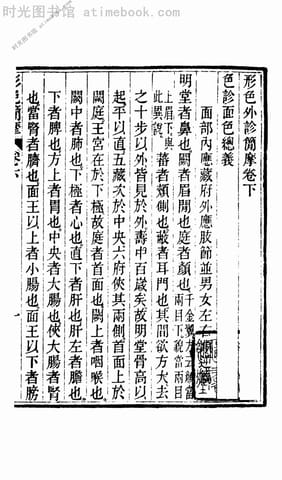 时光图书馆 atimebook.com
形色外診簡摩卷下
色診面色總義
面部內應藏府外應肢節並男女左右
明堂者鼻也闕者眉間也庭者顏也
上眉下與
此異蕃者頰側也蔽者耳門也其間欲方大去
之十步以外皆見於外壽中百歲矣故明堂骨高以
起平以直五藏次於中央六府俠其兩側首面上於
闕庭王宮在於下極故庭者首面也闕上者咽喉也
闕中者肺也下極者心也直下者肝也肝左者膽也
下者脾也方上者胃也中央者大腸也俠大腸者腎
也當腎者臍也面王以上者小腸也面王以下者膀
形色簡摩 卷下
一
时光图书馆 atimebook.com